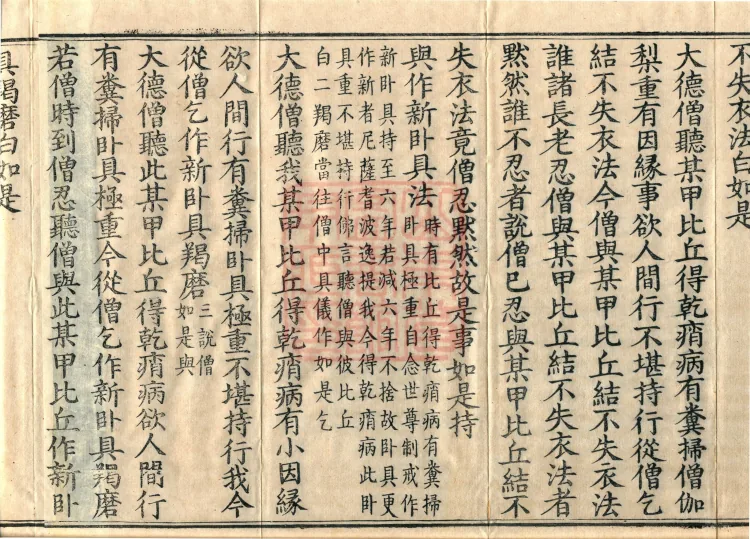 不失衣法白如是
大德僧聽某甲比丘得乾痟病有糞掃僧伽
梨重有因緣事欲人間行不堪持行從僧乞
結不失衣法今僧與某甲比丘結不失衣法
誰諸長老忍僧與某甲比丘結不失衣法者
默然誰不忍者說僧已忍與某甲比丘結不
失衣法竟僧忍默然故是事如是持
與作新卧具法時有比丘得乾痟病有糞掃
卧具極重自念世尊制戒作
新卧具持至六年若減六年不捨故卧具更
作新者尼薩耆波逸提我今得乾痟病此卧
具重不堪持行佛言聽僧與彼比丘
白二羯磨當往僧中具儀作如是乞
大德僧聽我某甲比丘得乾痟病有小因緣
欲人間行有糞掃卧具極重不堪持行我今
從僧乞作新卧具羯磨三說僧
如是與
大德僧聽此某甲比丘得乾痟病欲人間行
有糞掃卧具極重今從僧乞作新卧具羯磨
若僧時到僧忍聽僧與此某甲比丘作新卧
具羯磨白如是